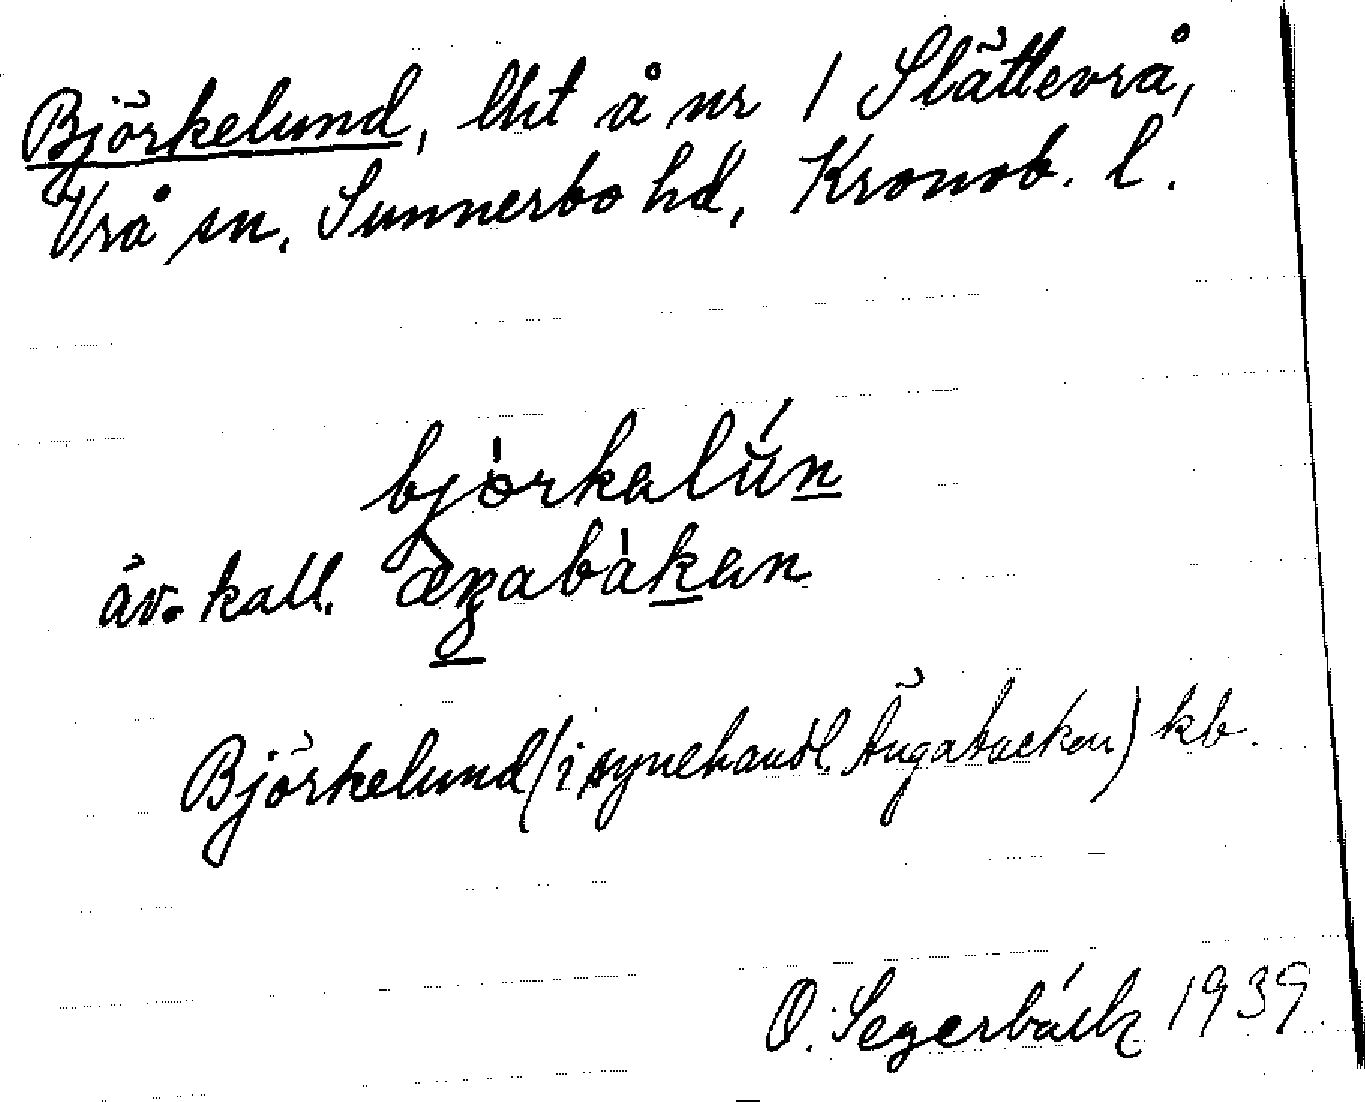 Björkelund, lht å nr 1 Slättevrå,
Vrå sn, Sunnerbo hd, Kronob. l.
björkalún
äv. kall. æŋabakan
Björkelund (i synehandl. Ängabacken) kb.
O. Segerbäck 1939.